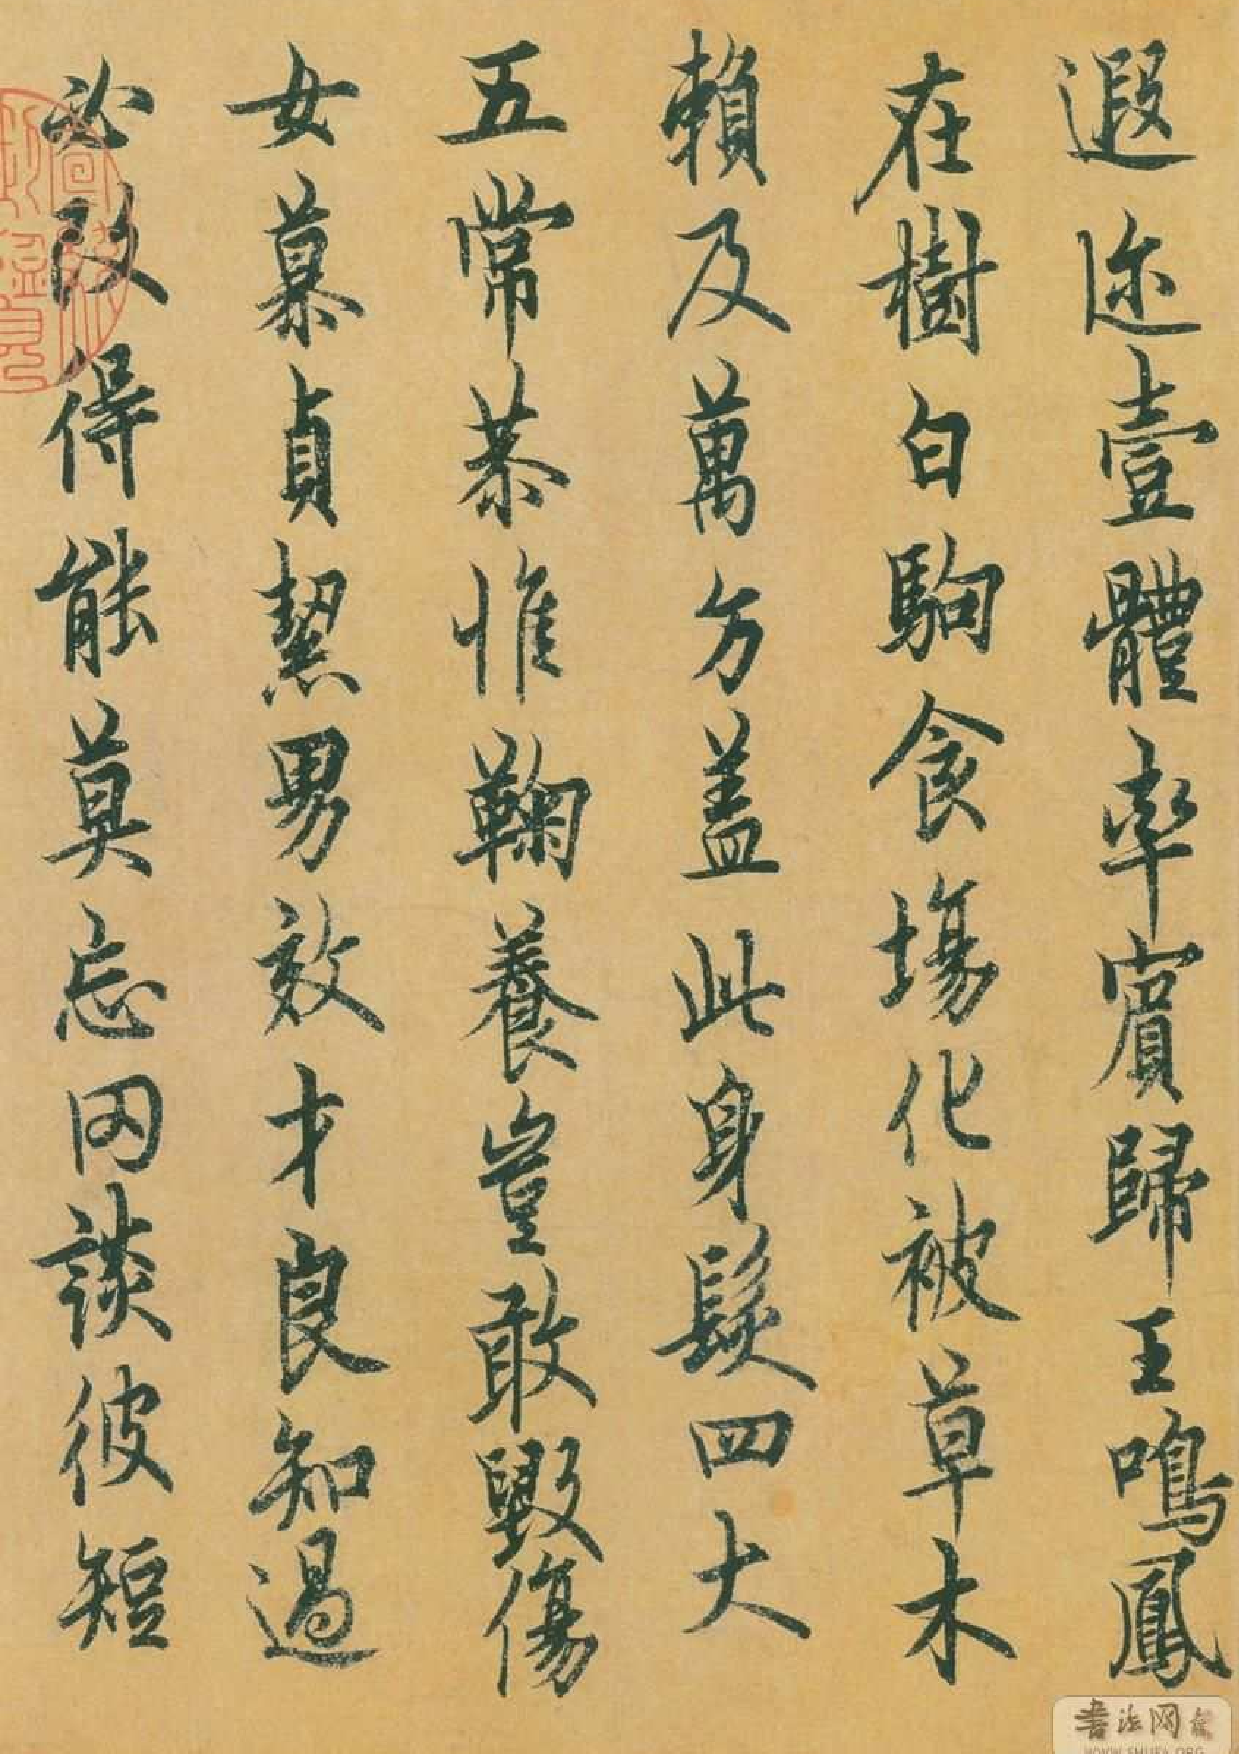 遐迩壹體率賓歸王鳴鳳
在樹白駒食場化被草木
賴及萬方盖此身髮四大
五常恭惟鞠養豈敢毀傷
女慕貞絜男效才良知過
必改得能莫忘罔談彼短
书法网
WWW.SHUFA.ORG